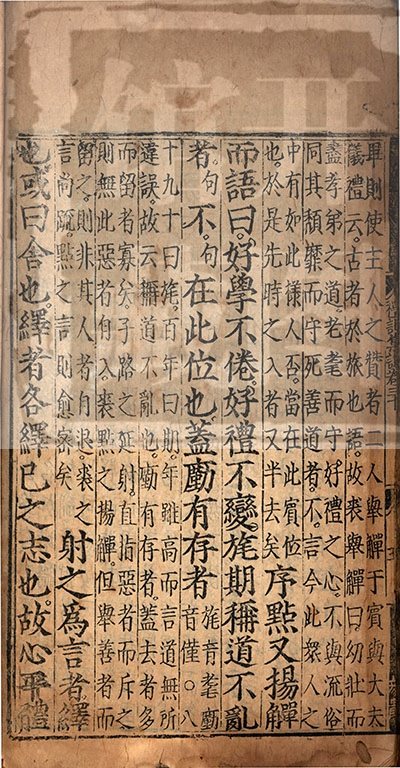 畢則使主人之贊者二人舉觶于賓與大夫
儀禮云古者於旅也語故裘舉觶曰幼壯而
盡孝弟之道老耄而守好禮之心不與流俗
同其頹靡而守死善道者不言今此衆人之
中有如此樣人否當在此賓位
也於是先時之入者又半去矣
序點又揚觶
而語曰好學不倦好禮不變旄期稱道不亂
者句不句在此位也蓋有存者
旄音耄
音僅○八
十九十曰旄百年曰期年雖高而言道無所
違誤故云稱道不亂也有存者蓋去者多
而留者寡矣子路之延射直指惡者而斥之
則無此惡者自入裘點之揚觶但舉善者而
留之則非其人者自退裘之
言尚疏點之言則愈密矣
射之為言者繹
也或曰舍也繹者各繹己之志也故心平體